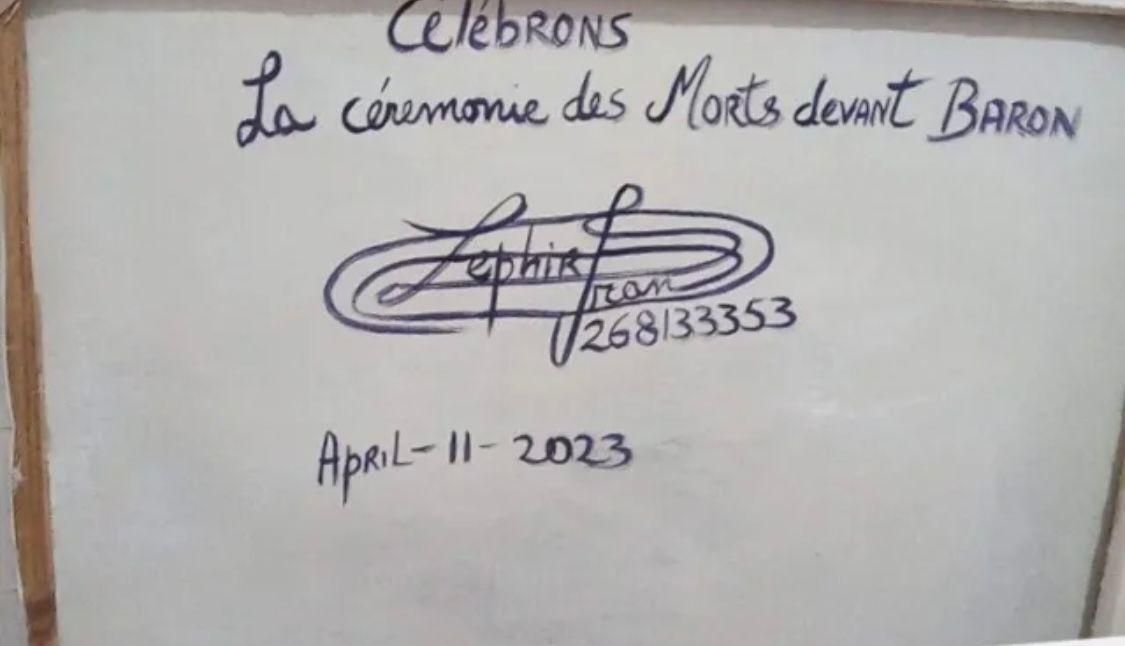 CélébRONS
La céremonie des Morts devant BARON
Zephir
Fran
268133353
APRIL-11-2023